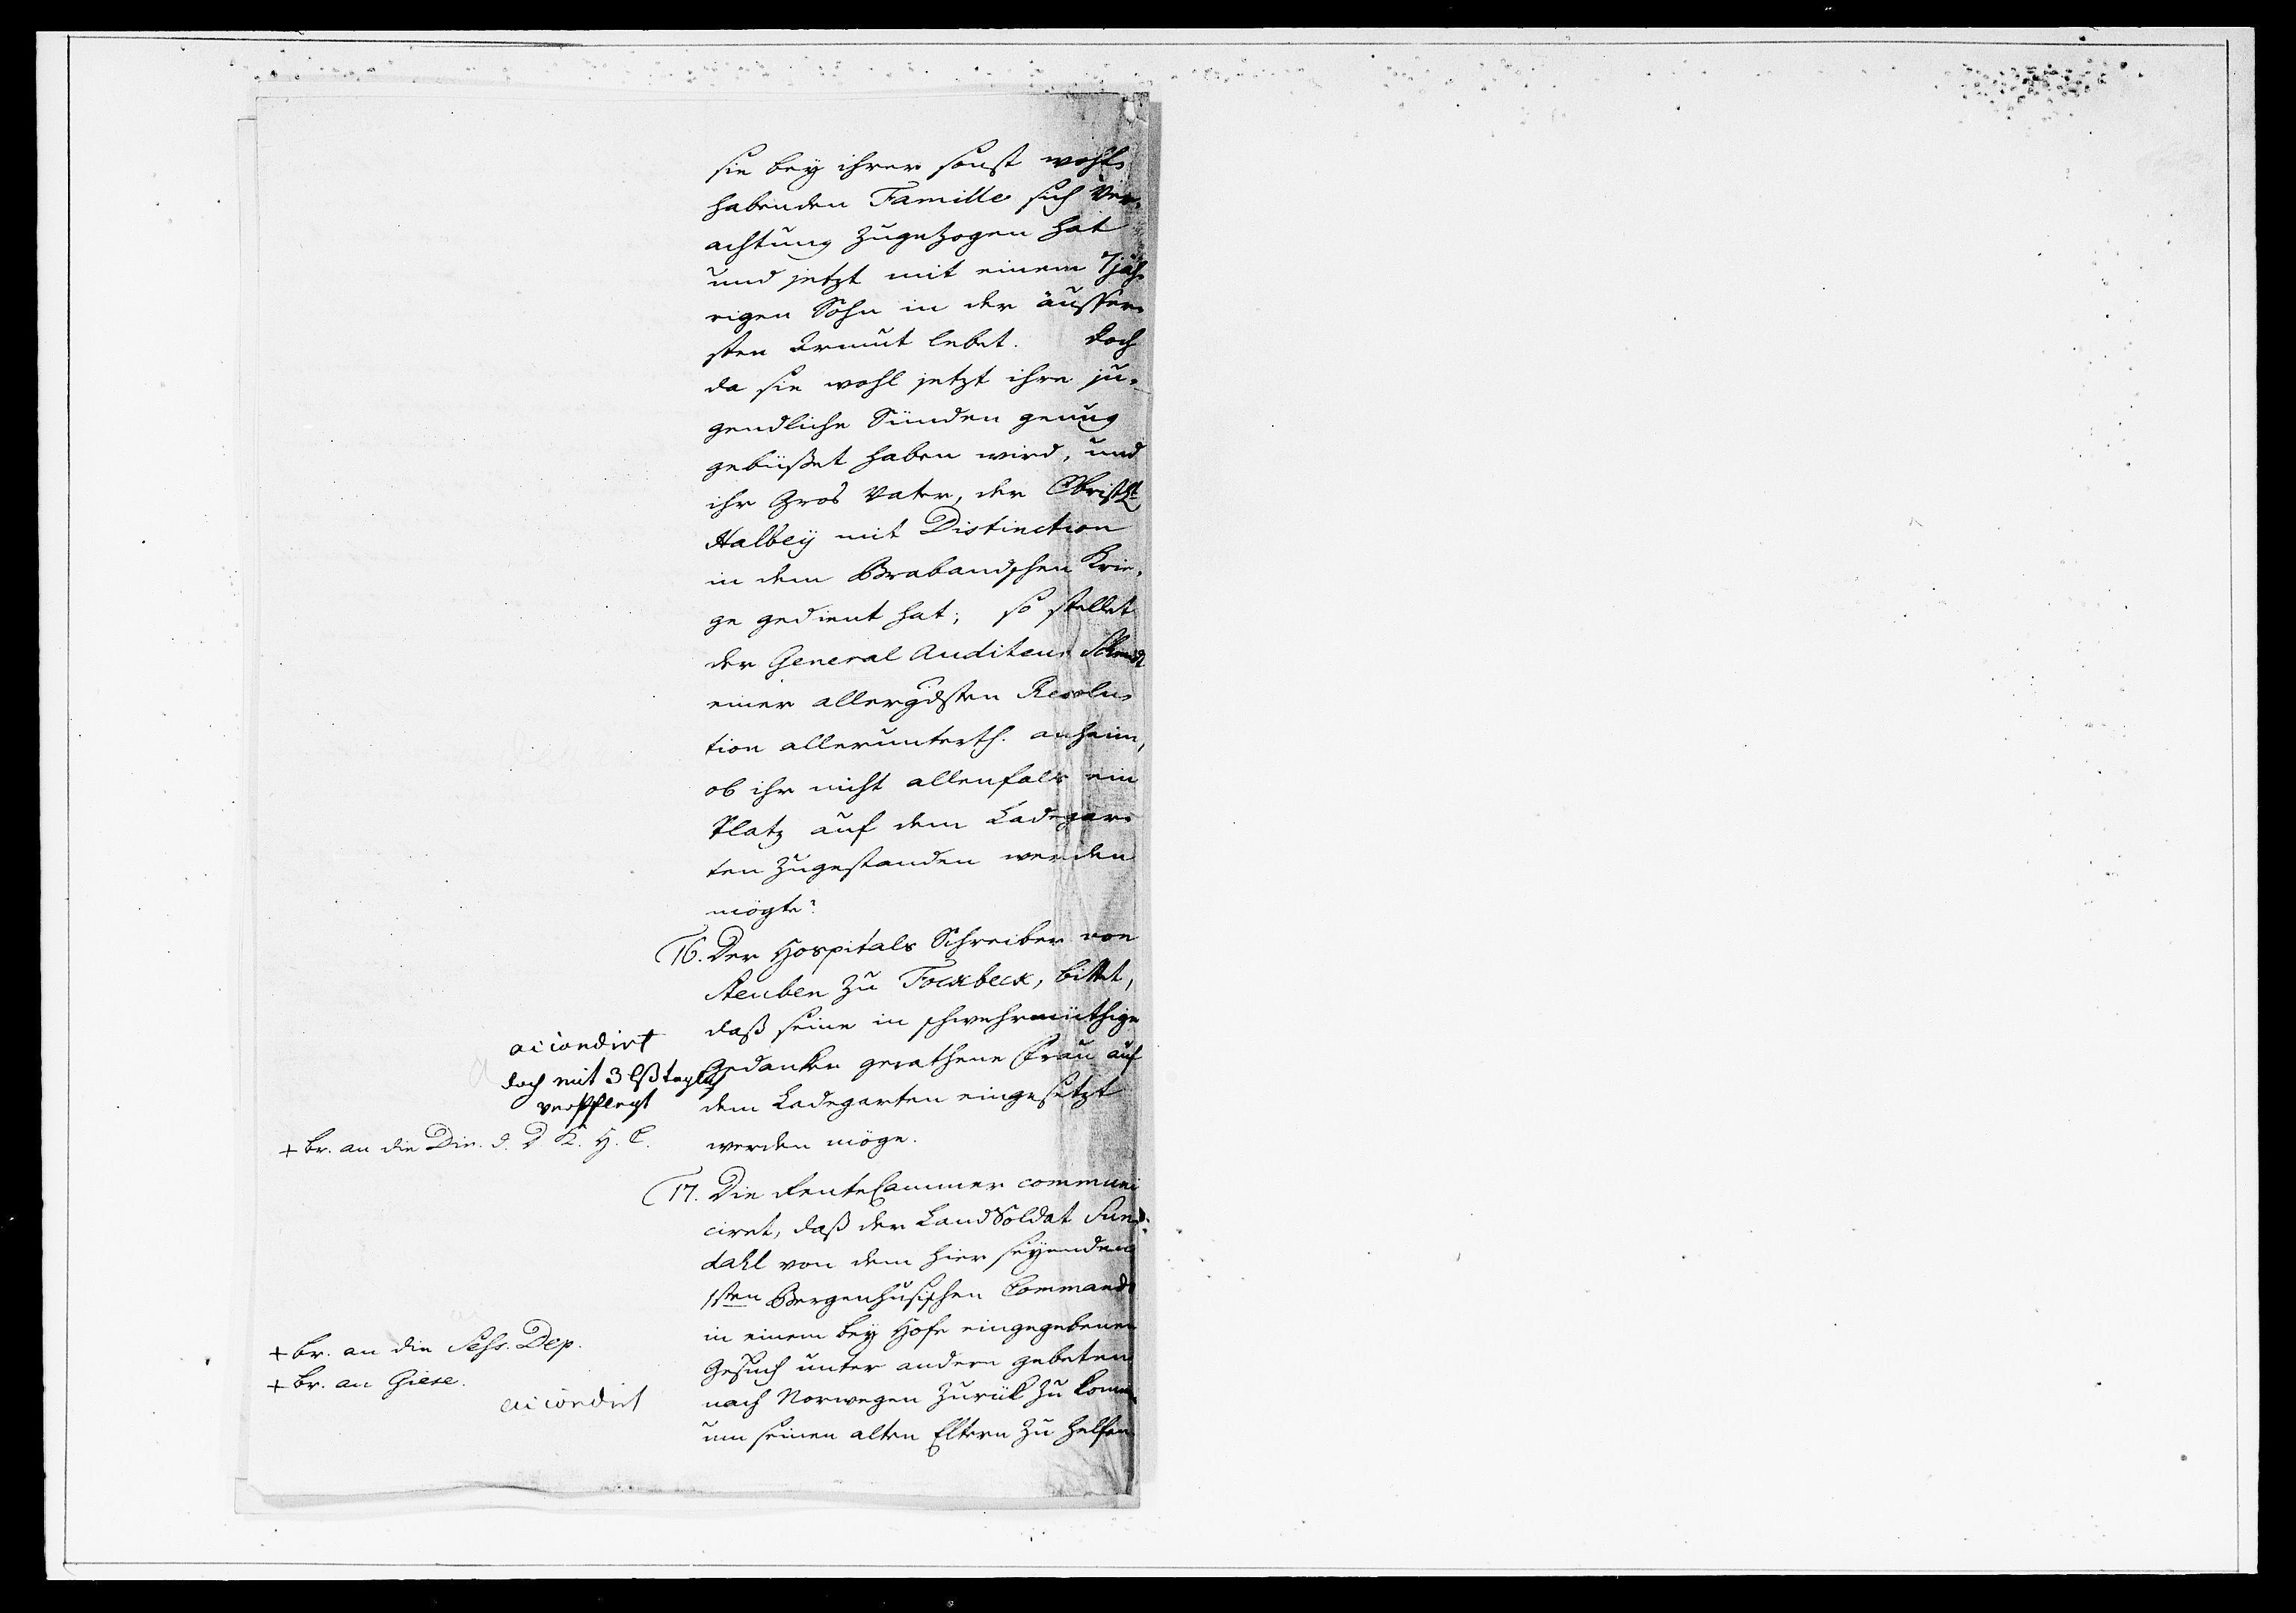 sie bey ihrer sonst wohl-
habenden Famille sich Ver-
achtung zugezogen hat
und jetzt mit einem 7jäh-
rigen Sohn in der äusser-
sten Armut lebet. Doch
da sie wohl jetzt ihre ju-
gendliche Sünden genug
gebüßet haben wird, und
ihr Gros Vater, der Obristlt
Halbeÿ mit Distinction
in dem Brabandschen Krie-
ge gedient hat; so stellet
der General Auditeur Schmidt
einer allergdsten Resolu-
tion allerunterth. anheim,
ob ihr nicht allenfals ein
Platz auf dem Ladegar-
ten zugestanden werden
mögte?
16. Der Hospitals Schreiber von
Steuben zu Fockbeck, bittet,
daß seine in schwehrmüthige
Gedanken gerathene Frau auf
dem Ladegarten eingesetzt
werden möge.
accordirt
doch mit 3 lß täglich
verpflegt
+ Br. an die Dir. d. D K. H. C.
17. Die RenteCammer communi
ciret, daß der LandSoldat Sun-
dahl von dem hier seyenden
1sten Bergenhusischen Commando
in einem bey Hofe eingegebenen
Gesuch unter andern gebeten
nach Norwegen zurük zu komm
um seinen alten Eltern zu helfen
+ Br. an die Sess. Dep.
+ Br. an Giese.
accordirt